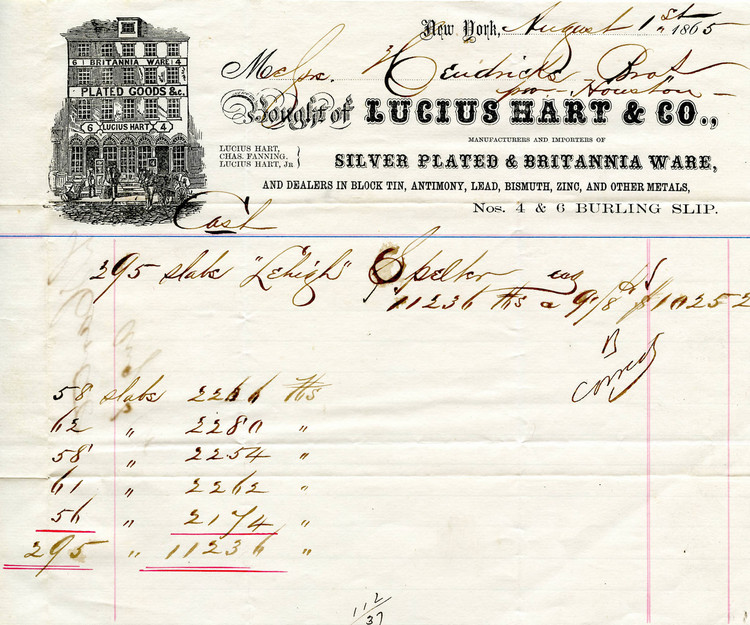 New York, August 1st 1865
6 BRITANNIA WARE 4
PLATED GOODS &c.
6 LUCIUS HART 4
Messrs. Hendricks Bros
pr Houston
Bought of LUCIUS HART & CO.,
MANUFACTURERS AND IMPORTERS OF
LUCIUS HART,
CHAS. FANNING.
LUCIUS HART, JR
SILVER PLATED & BRITANNIA WARE,
AND DEALERS IN BLOCK TIN, ANTIMONY, LEAD, BISMUTH, ZINC, AND OTHER METALS,
Nos. 4 & 6 BURLING SLIP.
Cash
295 slabs "Lehigh" Spelter
11236 lbs a 9 1/8 $ 1025 2
correct
58 slabs 2266 lbs
62 " 2280 "
58 " 2254 "
61 " 2262 "
56 " 2174 "
295 " 11236 "
112/37